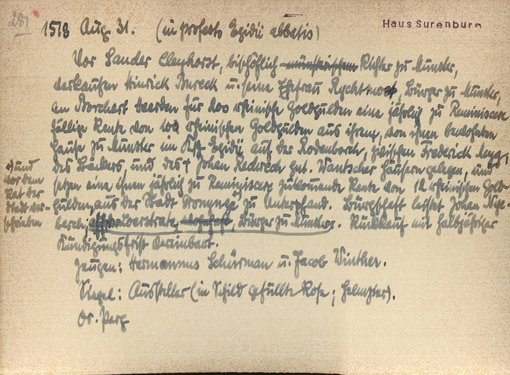 Haus Surenburg
1518 Aug 31. (in profesto Egidii abbatis)
Vor Sander Cleyhorst, bischöflich münsterischem Richter zu Münster,
verkaufen Hinrick und seine Ehefrau Bürger zu Münster,
an Borchert Heerden für 200 rheinische Goldgulden eine jährlich zu Reminiscere
fällige Rente von 10 rheinischen Goldgulden aus ihrem, von ihnen bewohnten
Hause zu Münster im Kirchspiel Egidii auf der Rodenborch, zwischen Frederick
des Bäckers, und des † Johan Rederech gut. Häusern gelegen, und
setzen eine ihnen jährlich zu Reminiscere zukommende Rente von 12 rheinischen Gold-
gulden aus der Stadt zu Unterpfand. Bürgschaft leistet Johan
Bürger zu Münster. Rückkauf mit halbjähriger
Kündigungsfrist vereinbart.
und vor dem Rat der Stadt ver-
schrieben
Zeugen: Hermannus Schürman u. Jacob Winther.
Siegel: Aussteller (in Schild gefüllte Rose; Helmzier).
Or. Perg